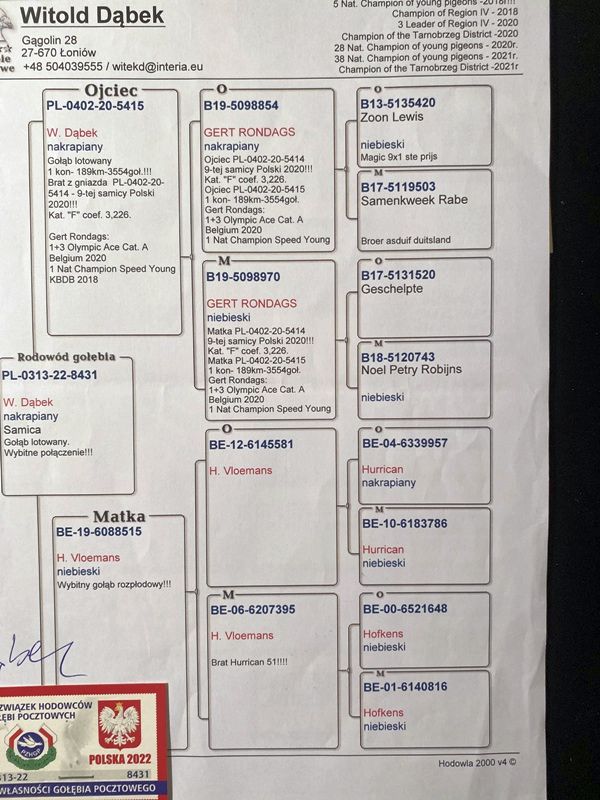 Witold Dąbek
Gągolin 28
27-670 Łoniów
+48 504039555 / witekd@interia.eu
5 Nat. Champion of young pigeons -2018r!!!
Champion of Region IV - 2018
3 Leader of Region IV - 2020
Champion of the Tarnobrzeg District -2020
28 Nat. Champion of young pigeons - 2020r.
38 Nat. Champion of young pigeons - 2021r.
Champion of the Tarnobrzeg District -2021r
Ojciec
PL-0402-20-5415
W. Dąbek
nakrapiany
Gołąb lotowany
1 kon- 189km-3554goł.!!!
Brat z gniazda PL-0402-20-
5414 - 9-tej samicy Polski
2020!!!
Kat. "F" coef. 3,226.
Gert Rondags:
1+3 Olympic Ace Cat. A
Belgium 2020
1 Nat Champion Speed Young
KBDB 2018
O
B19-5098854
GERT RONDAGS
nakrapiany
Ojciec PL-0402-20-5414
9-tej samicy Polski 2020!!!
Kat. "F" coef. 3,226.
Ojciec PL-0402-20-5415
1 kon- 189km-3554goł.
Gert Rondags:
1+3 Olympic Ace Cat. A
Belgium 2020
1 Nat Champion Speed Young
O
B13-5135420
Zoon Lewis
niebieski
Magic 9x1 ste prijs
M
B17-5119503
Samenkweek Rabe
Broer asduif duitsland
M
B19-5098970
GERT RONDAGS
niebieski
Matka PL-0402-20-5414
9-tej samicy Polski 2020!!!
Kat. "F" coef. 3,226.
Matka PL-0402-20-5415
1 kon- 189km-3554goł.
Gert Rondags:
1+3 Olympic Ace Cat. A
Belgium 2020
1 Nat Champion Speed Young
O
B17-5131520
Geschelpte
M
B18-5120743
Noel Petry Robijns
niebieski
Rodowód gołębia
PL-0313-22-8431
W. Dąbek
nakrapiany
Samica
Gołąb lotowany.
Wybitne połączenie!!!
Matka
BE-19-6088515
H. Vloemans
niebieski
Wybitny gołąb rozpłodowy!!!
O
BE-12-6145581
H. Vloemans
O
BE-04-6339957
Hurrican
nakrapiany
M
BE-10-6183786
Hurrican
niebieski
M
BE-06-6207395
H. Vloemans
Brat Hurrican 51!!!!
O
BE-00-6521648
Hofkens
niebieski
M
BE-01-6140816
Hofkens
niebieski
ZWIĄZEK HODOWCÓW
GOŁĘBI POCZTOWYCH
POLSKA 2022
313-22
8431
WŁASNOŚCI GOŁĘBIA POCZTOWEGO
Hodowla 2000 v4 ©